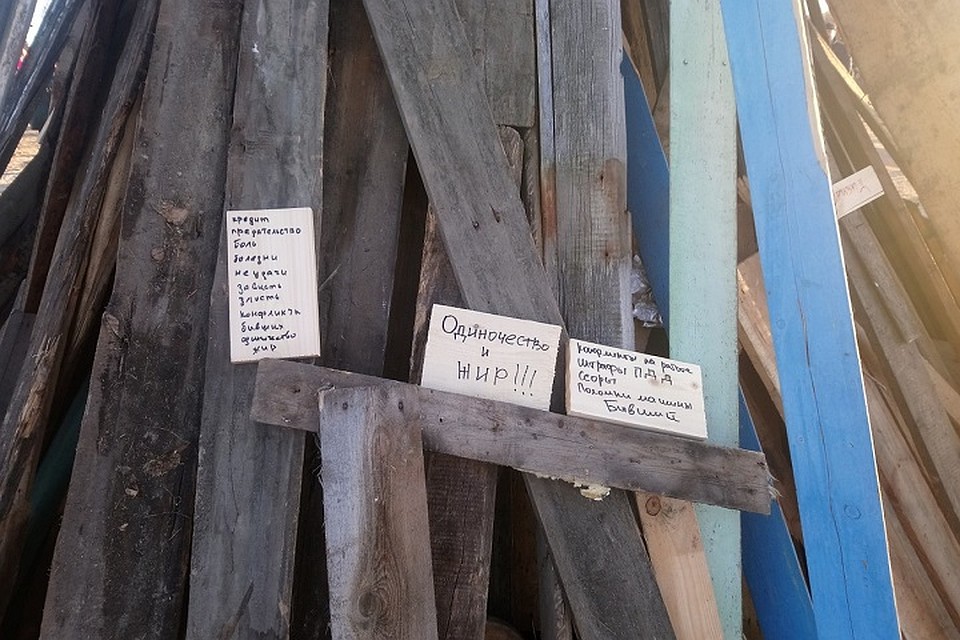 кредит
предательство
боль
болезни
неудачи
зависть
злость
конфликты
бывших
одиночество
жир
Одиночество
и
жир!!!
Конфликты на работе
Штрафы П.Д.Д
Ссоры
Поломки машины
Бывший